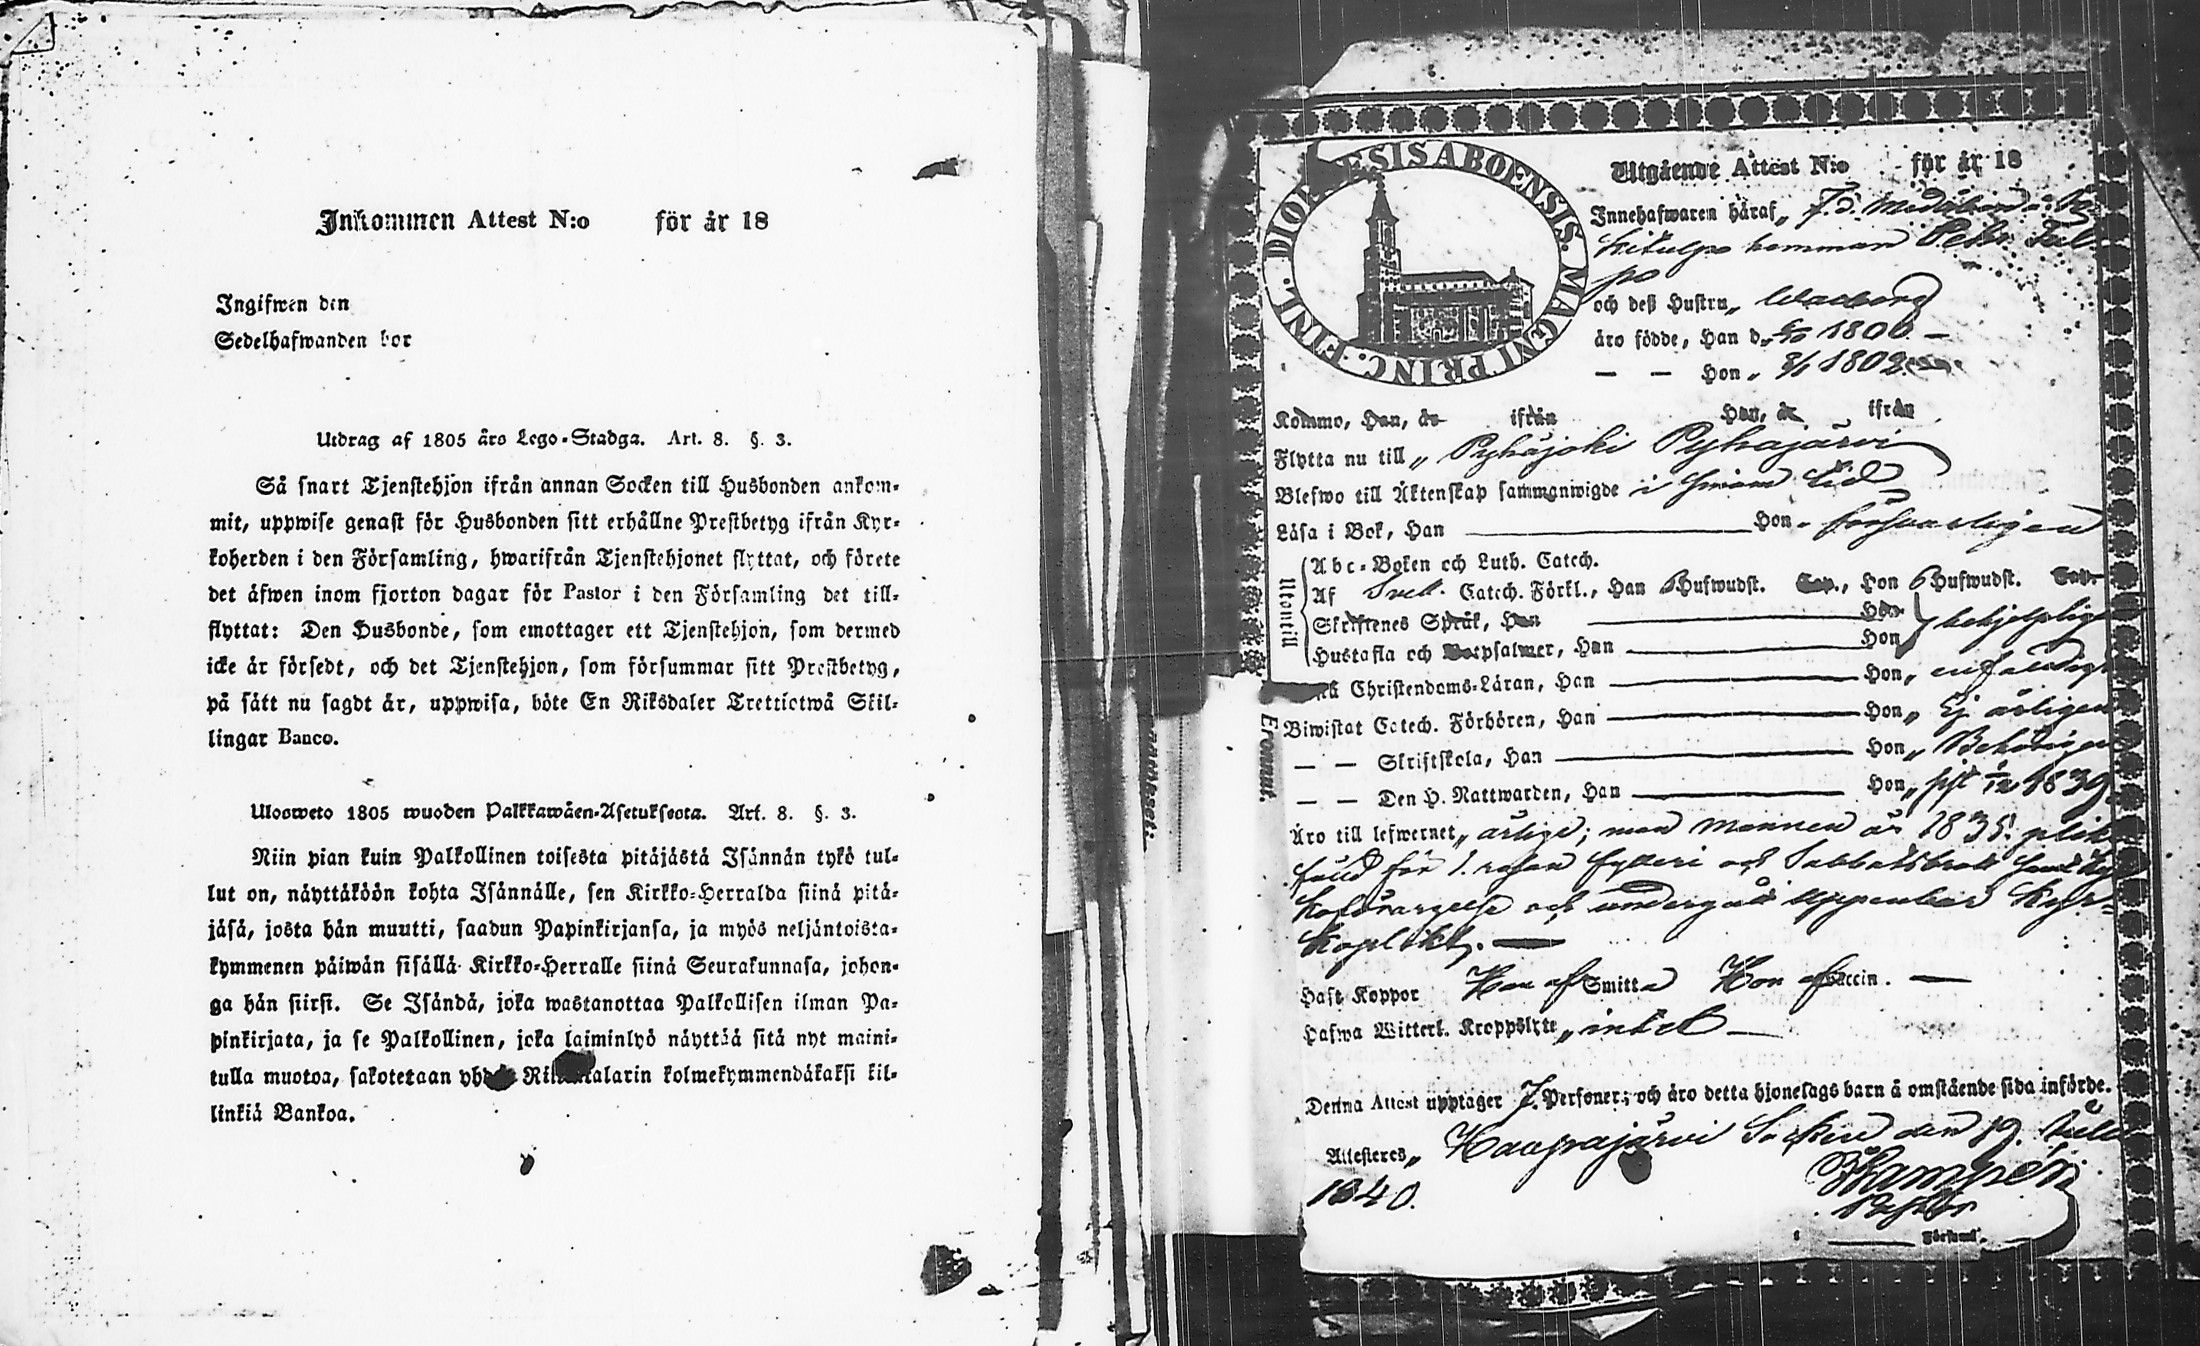 Inkommen Attest N:o för år 18
Ingifwen den
Sedelhafwanden bor
Utdrag af 1805 års Lego-Stadga. Art. 8. §. 3.
Så snart Tjenstehjon ifrån annan Socken till Husbonden ankom-
mit, uppwise genast för Husbonden sitt erhållne Prestbetyg ifrån Kyr-
koherden i den Församling, hwarifrån Tjenstehjonet flyttat, och förete
det äfwen inom fjorton dagar för Pastor i den Församling det till-
flyttat: Den Husbonde, som emottager ett Tjenstehjon, som dermed
icke är försedt, och det Tjenstehjon, som försummar sitt Prestbetyg,
på sätt nu sagdt är, uppwisa, böte En Riksdaler Trettiotwå Skil-
lingar Banco.
Ulosweto 1805 wuoden Palkkawäen-Asetuksesta. Art. 8. §. 3.
Niin pian kuin Palkollinen toisesta pitäjästä Isännän tykö tul-
lut on, näyttäköön kohta Isännälle, sen Kirkko-Herralda siinä pitä-
jäsä, josta hän muutti, saadun Papinkirjansa, ja myös neljäntoista-
kymmenen päiwän sisällä Kirkko-Herralle siinä Seurakunnasa, johon-
ga hän siirsi. Se Isändä, joka wastanottaa Palkollisen ilman Pa-
pinkirjata, ja se Palkollinen, joka laiminlyö näyttää sitä nyt maini-
tulla muotoa, sakotetaan yhden Riksitalarin kolmekymmendäkaksi kil-
linkiä Bankoa.
FINL. DIOECESIS ABOENSIS. MAGNI PRINC.
Utgående Attest N:o för år 18
Innehafwaren häraf, F. d.
hemman Petr
och deß Hustru,
äro födde, Han d. 1800. –
— — Hon, 1802.
Kommo, Han, år ifrån Hon, år ifrån
Flytta nu till, Pyhäjoki Pyhajärvi
Blefwo till Äktenskap sammanwigde i sinom tid
Läsa i Bok, Han Hon, försvarligen
Utontill
Abc-Boken och Luth. Catech.
Af Sveb. Catech. Förkl., Han 6 Hufwudst. Cap., Hon 6 Hufwudst. Cap.
Skriftenes Språk, Han Hon behjelpligen
Hustafla och Botpsalmer, Han Hon
Christendoms-Läran, Han Hon,
Biwistat Catech. Förhören, Han Hon, Ej årligen
— — Skriftskola, Han Hon, Behörigen
— — Den H. Nattwarden, Han Hon, sist 1/12 1839.
Äro till lefwernet, ärlige; men mannen är 1835
för 1. resan fylleri och Sabbatsbrott samt
och undergått uppenbar Kyr-
koplikt. —
Haft Koppor Han af Smitta Hon af Vaccin. —
Hafwa Witterl. Kroppslyte, intet —
Denna Attest upptager 7. Personer; och äro detta hjonelags barn å omstående sida införde.
Attesteres, Haapajärvi Socken den 19. Juli
1840.
Pastor
Församl.
Eronnut.